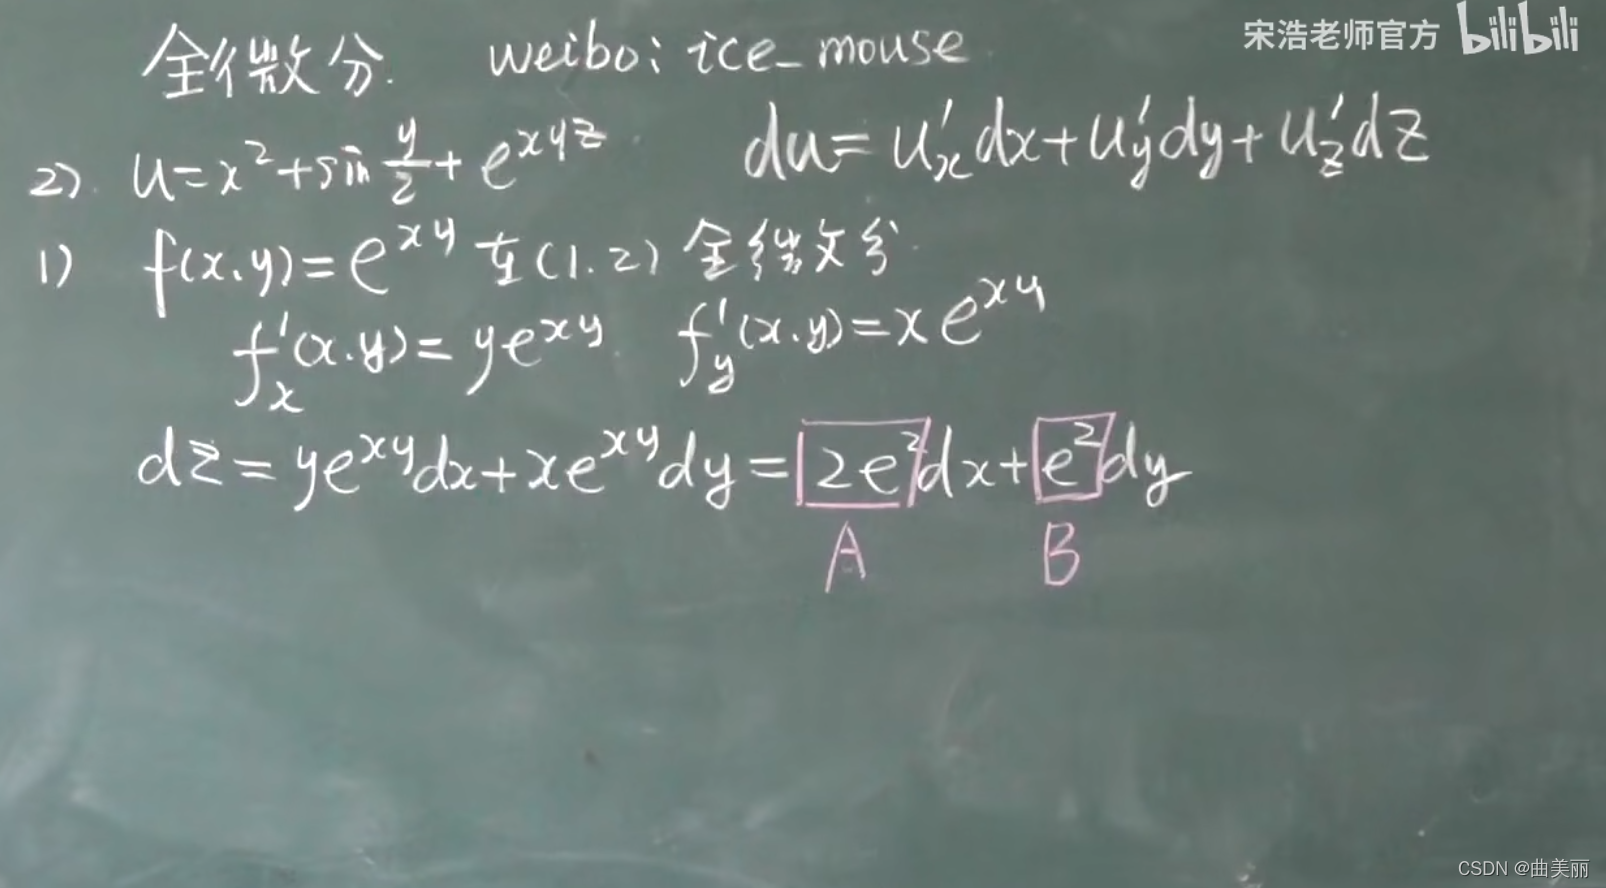 宋浩老师官方 bilibili
全微分. weibo: ice_mouse
2). u=x²+sin y/2+e^{xyz} du=u'_x dx+u'_y dy+u'_z dz
1) f(x.y)=e^{xy} 在(1.2) 全微分.
f'_x(x.y)=ye^{xy}. f'_y(x.y)=xe^{xy}
dz=ye^{xy}dx+xe^{xy}dy=2e²dx+e²dy
A B
CSDN @曲美丽